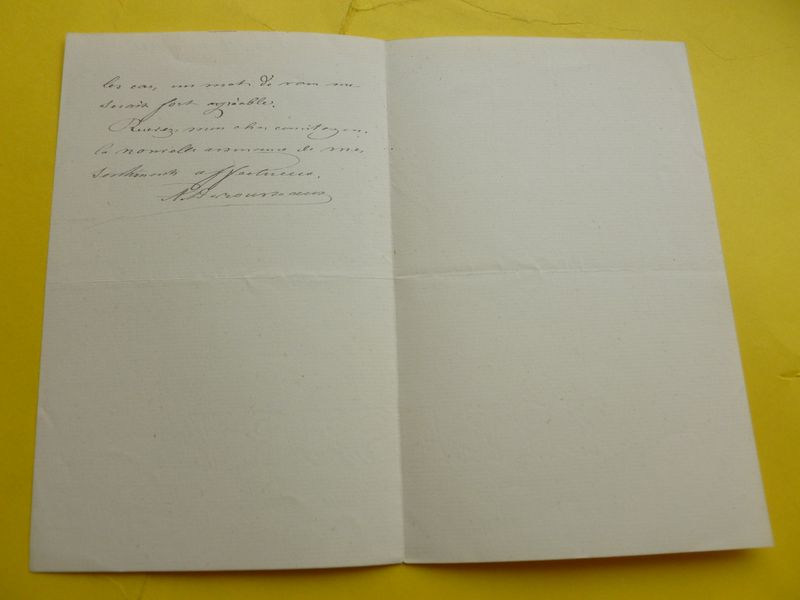 les cas, un mot de vous me
serait fort agréable.
Recevez, mon cher concitoyen,
la nouvelle assurance de mes
sentiments affectueux.
ADesrousseaux